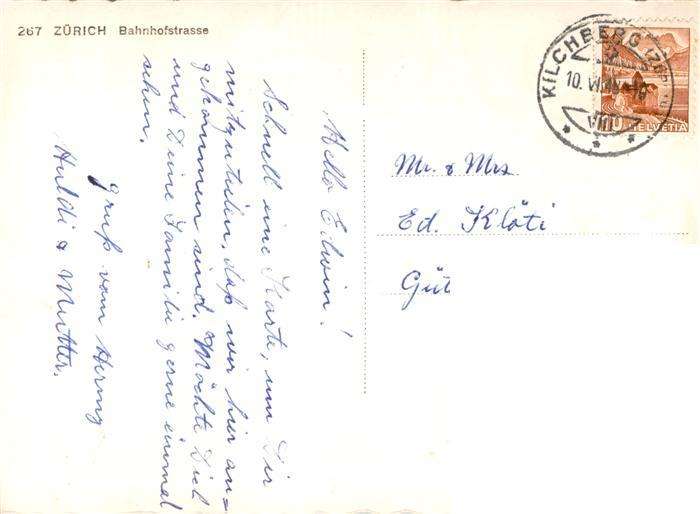 267 ZÜRICH Bahnhofstrasse
Hello Edwin!
Schnell eine Karte, um Dir
mitzuteilen, daß wir hier an=
gekommen sind. Möchte Dich
und Deine Familie gerne einmal
sehen.
Gruß vom
Huldi & Mutter.
KILCHBERG (ZÜRICH)
10. VI.
VIII
10
HELVETIA
Mr. & Mrs
Ed. Klöti
Güt